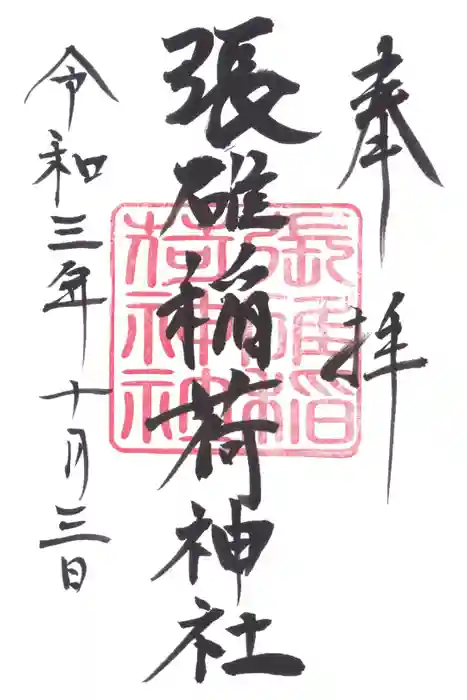 奉拝
張碓稲荷神社
令和三年十月三日
張碓稲荷神社